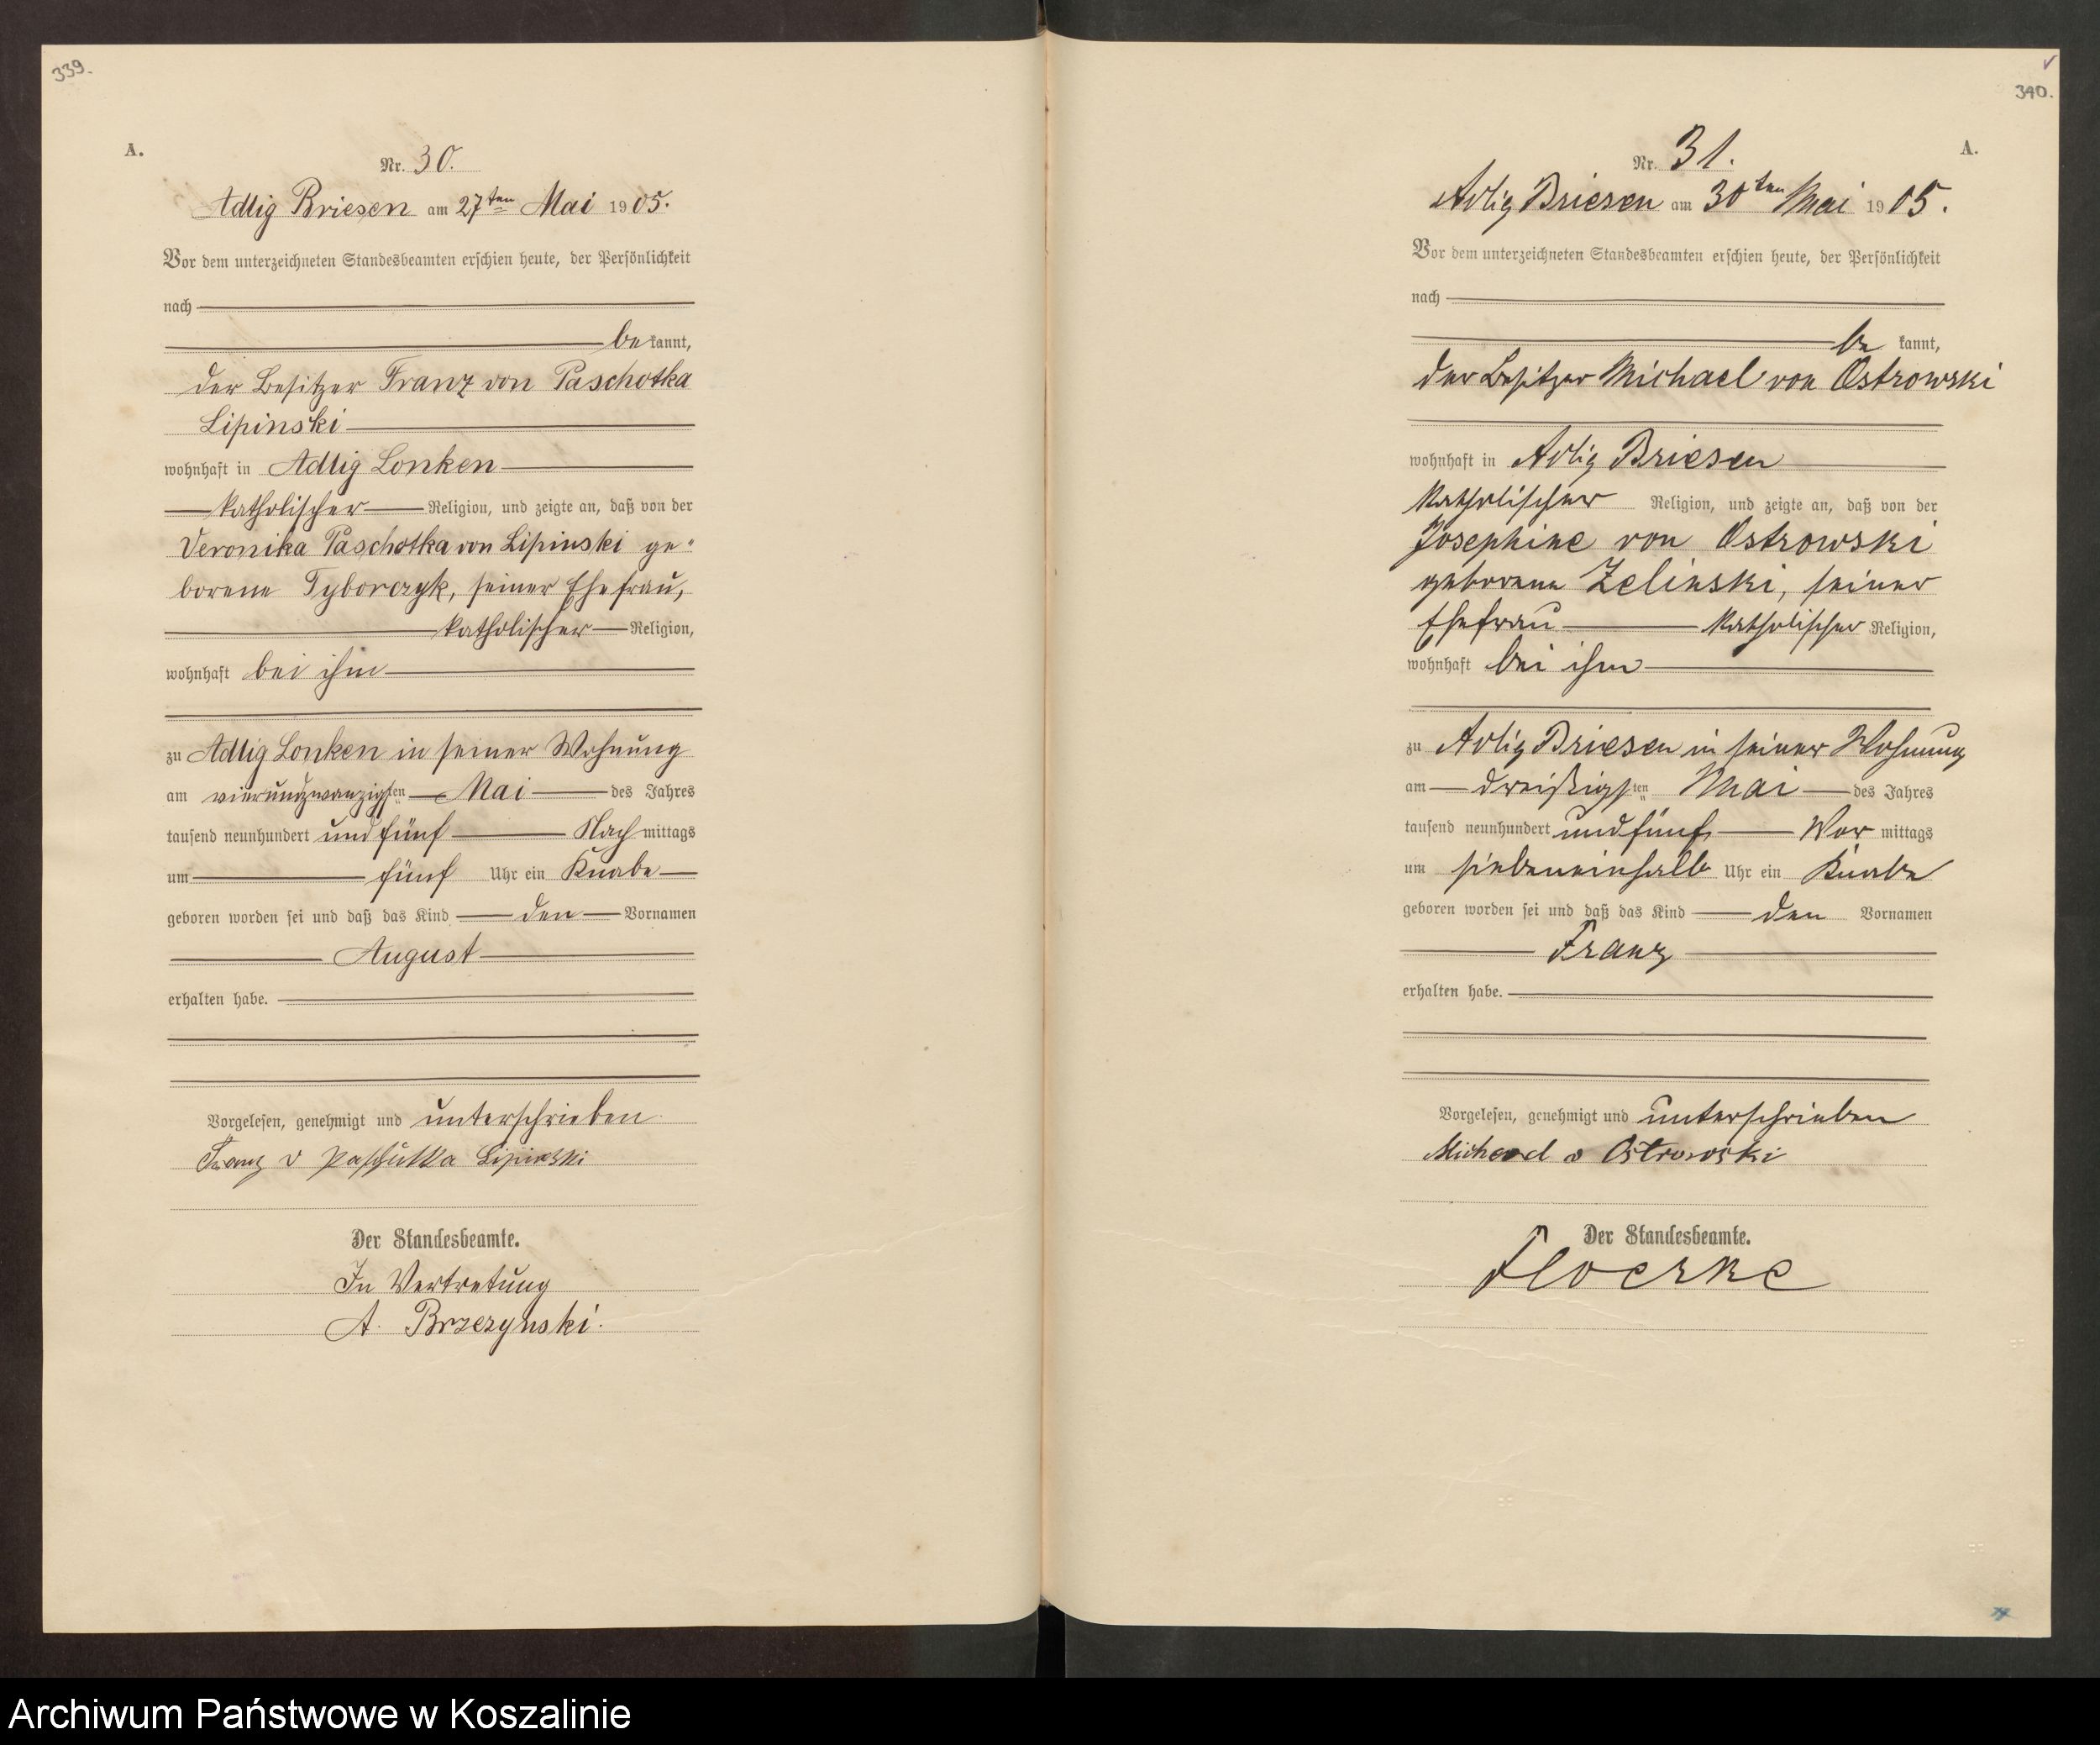 339.
A.
Nr. 30.
Adlig Briesen am 27ten Mai 1905.
Vor dem unterzeichneten Standesbeamten erschien heute, der Persönlichkeit
nach
bekannt,
der Besitzer Franz von Paschotka
Lipinski
wohnhaft in Adlig Lonken
katholischer Religion, und zeigte an, daß von der
Veronika Paschotka von Lipinski ge-
borene Tyborczyk, seiner Ehefrau,
katholischer Religion,
wohnhaft bei ihm
zu Adlig Lonken in seiner Wohnung
am vierundzwanzigsten Mai des Jahres
tausend neunhundert und fünf Nachmittags
um fünf Uhr ein Knabe
geboren worden sei und daß das Kind den Vornamen
August
erhalten habe.
Vorgelesen, genehmigt und unterschrieben
Franz v Paschutka Lipinski
Der Standesbeamte.
In Vertretung
A. Brzezynski.
340.
A.
Nr. 31.
Adlig Briesen am 30ten Mai 1905.
Vor dem unterzeichneten Standesbeamten erschien heute, der Persönlichkeit
nach
be kannt,
der Besitzer Michael von Ostrowski
wohnhaft in Adlig Briesen
katholischer Religion, und zeigte an, daß von der
Josephine von Ostrowski
geborene Zelinski, seiner
Ehefrau katholischer Religion,
wohnhaft bei ihm
zu Adlig Briesen in seiner Wohnung
am dreißigsten Mai des Jahres
tausend neunhundert und fünf Vor mittags
um siebeneinhalb Uhr ein Knabe
geboren worden sei und daß das Kind den Vornamen
Franz
erhalten habe.
Vorgelesen, genehmigt und unterschrieben
Michael v Ostrowski
Der Standesbeamte.
Floerke
Archiwum Państwowe w Koszalinie